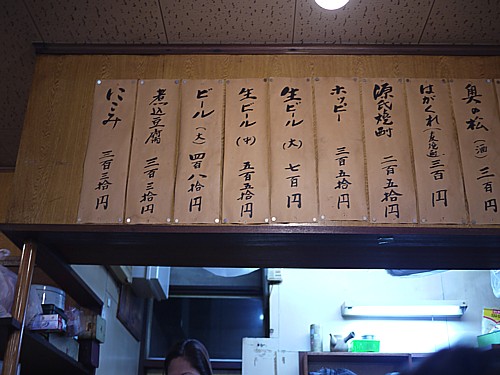 奥の松(酒)三百円
はがくれ(麦焼酎)三百円
源氏焼酎 二百五拾円
ホッピー 三百五拾円
生ビール(大)七百円
生ビール(中)五百五拾円
ビール(大)四百八拾円
煮込豆腐 三百三拾円
にこみ 三百三拾円